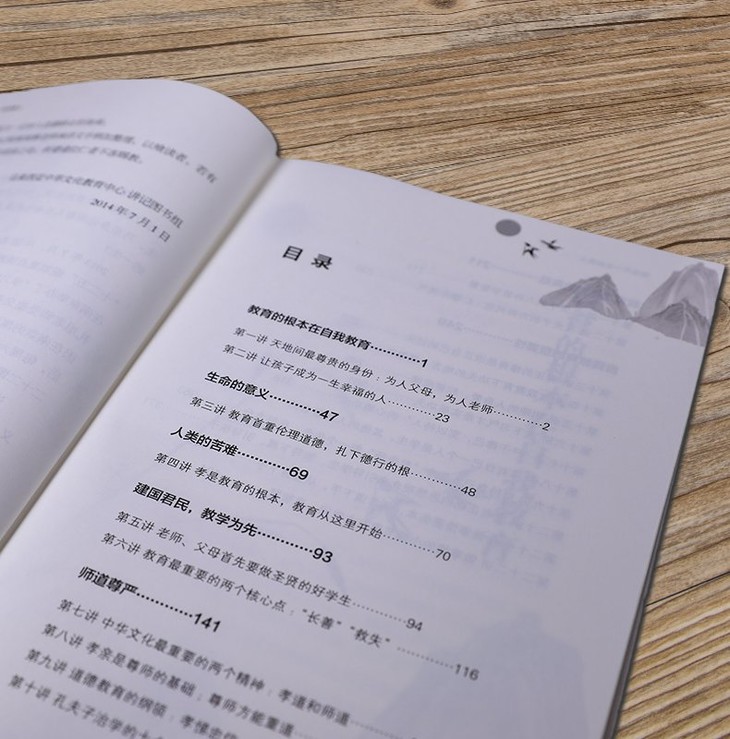 以飨读者，若有
中华文化教育中心 讲记图书组
2014年7月1日
目录
教育的根本在自我教育…………1
第一讲 天地间最尊贵的身份：为人父母，为人老师…………2
第二讲 让孩子成为一生幸福的人…………23
生命的意义…………47
第三讲 教育首重伦理道德，扎下德行的根…………48
人类的苦难…………69
第四讲 孝是教育的根本，教育从这里开始…………70
建国君民，教学为先…………93
第五讲 老师、父母首先要做圣贤的好学生…………94
第六讲 教育最重要的两个核心点：“长善”“救失”…………116
师道尊严…………141
第七讲 中华文化最重要的两个精神：孝道和师道…………
第八讲 孝亲是尊师的基础；尊师方能重道
第九讲 道德教育的纲领：孝悌忠信
第十讲 孔夫子治学的